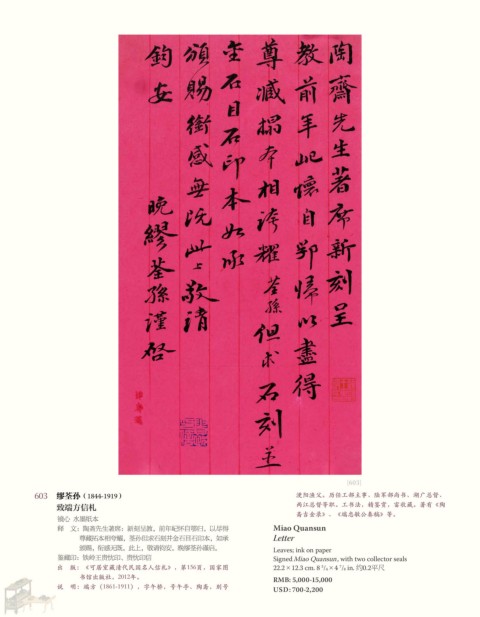 陶齋先生著席新刻呈
教前年屺懷自鄂歸以盡得
尊藏搨本相誇耀荃孫但求石刻並
金石目石印本如承
頒賜銜感無既此上敬請
鈞安
晚繆荃孫謹啓
[603]
603 缪荃孙（1844-1919）
致端方信札
镜心 水墨纸本
释 文：陶斋先生著席：新刻呈教。前年屺怀自鄂归，以尽得
尊藏拓本相夸耀，荃孙但求石刻并金石目石印本，如承
颁赐，衔感无既。此上，敬请钧安。晚缪荃孙谨启。
鉴藏印：
出 版：《可居室藏清代民国名人信札》，第156页，国家图
书馆出版社，2012年。
说 明：端方（1861-1911），字午桥，号午亭、陶斋，别号
浭阳渔父。历任工部主事、陆军部尚书、湖广总督、
两江总督等职。工书法，精鉴赏，富收藏。著有《陶
斋吉金录》、《端忠敏公奏稿》等。
Miao Quansun
Letter
Leaves; ink on paper
Signed Miao Quansun, with two collector seals
22.2 × 12.3 cm. 8 3/4 × 4 7/8 in. 约0.2平尺
RMB: 5,000-15,000
USD: 700-2,200